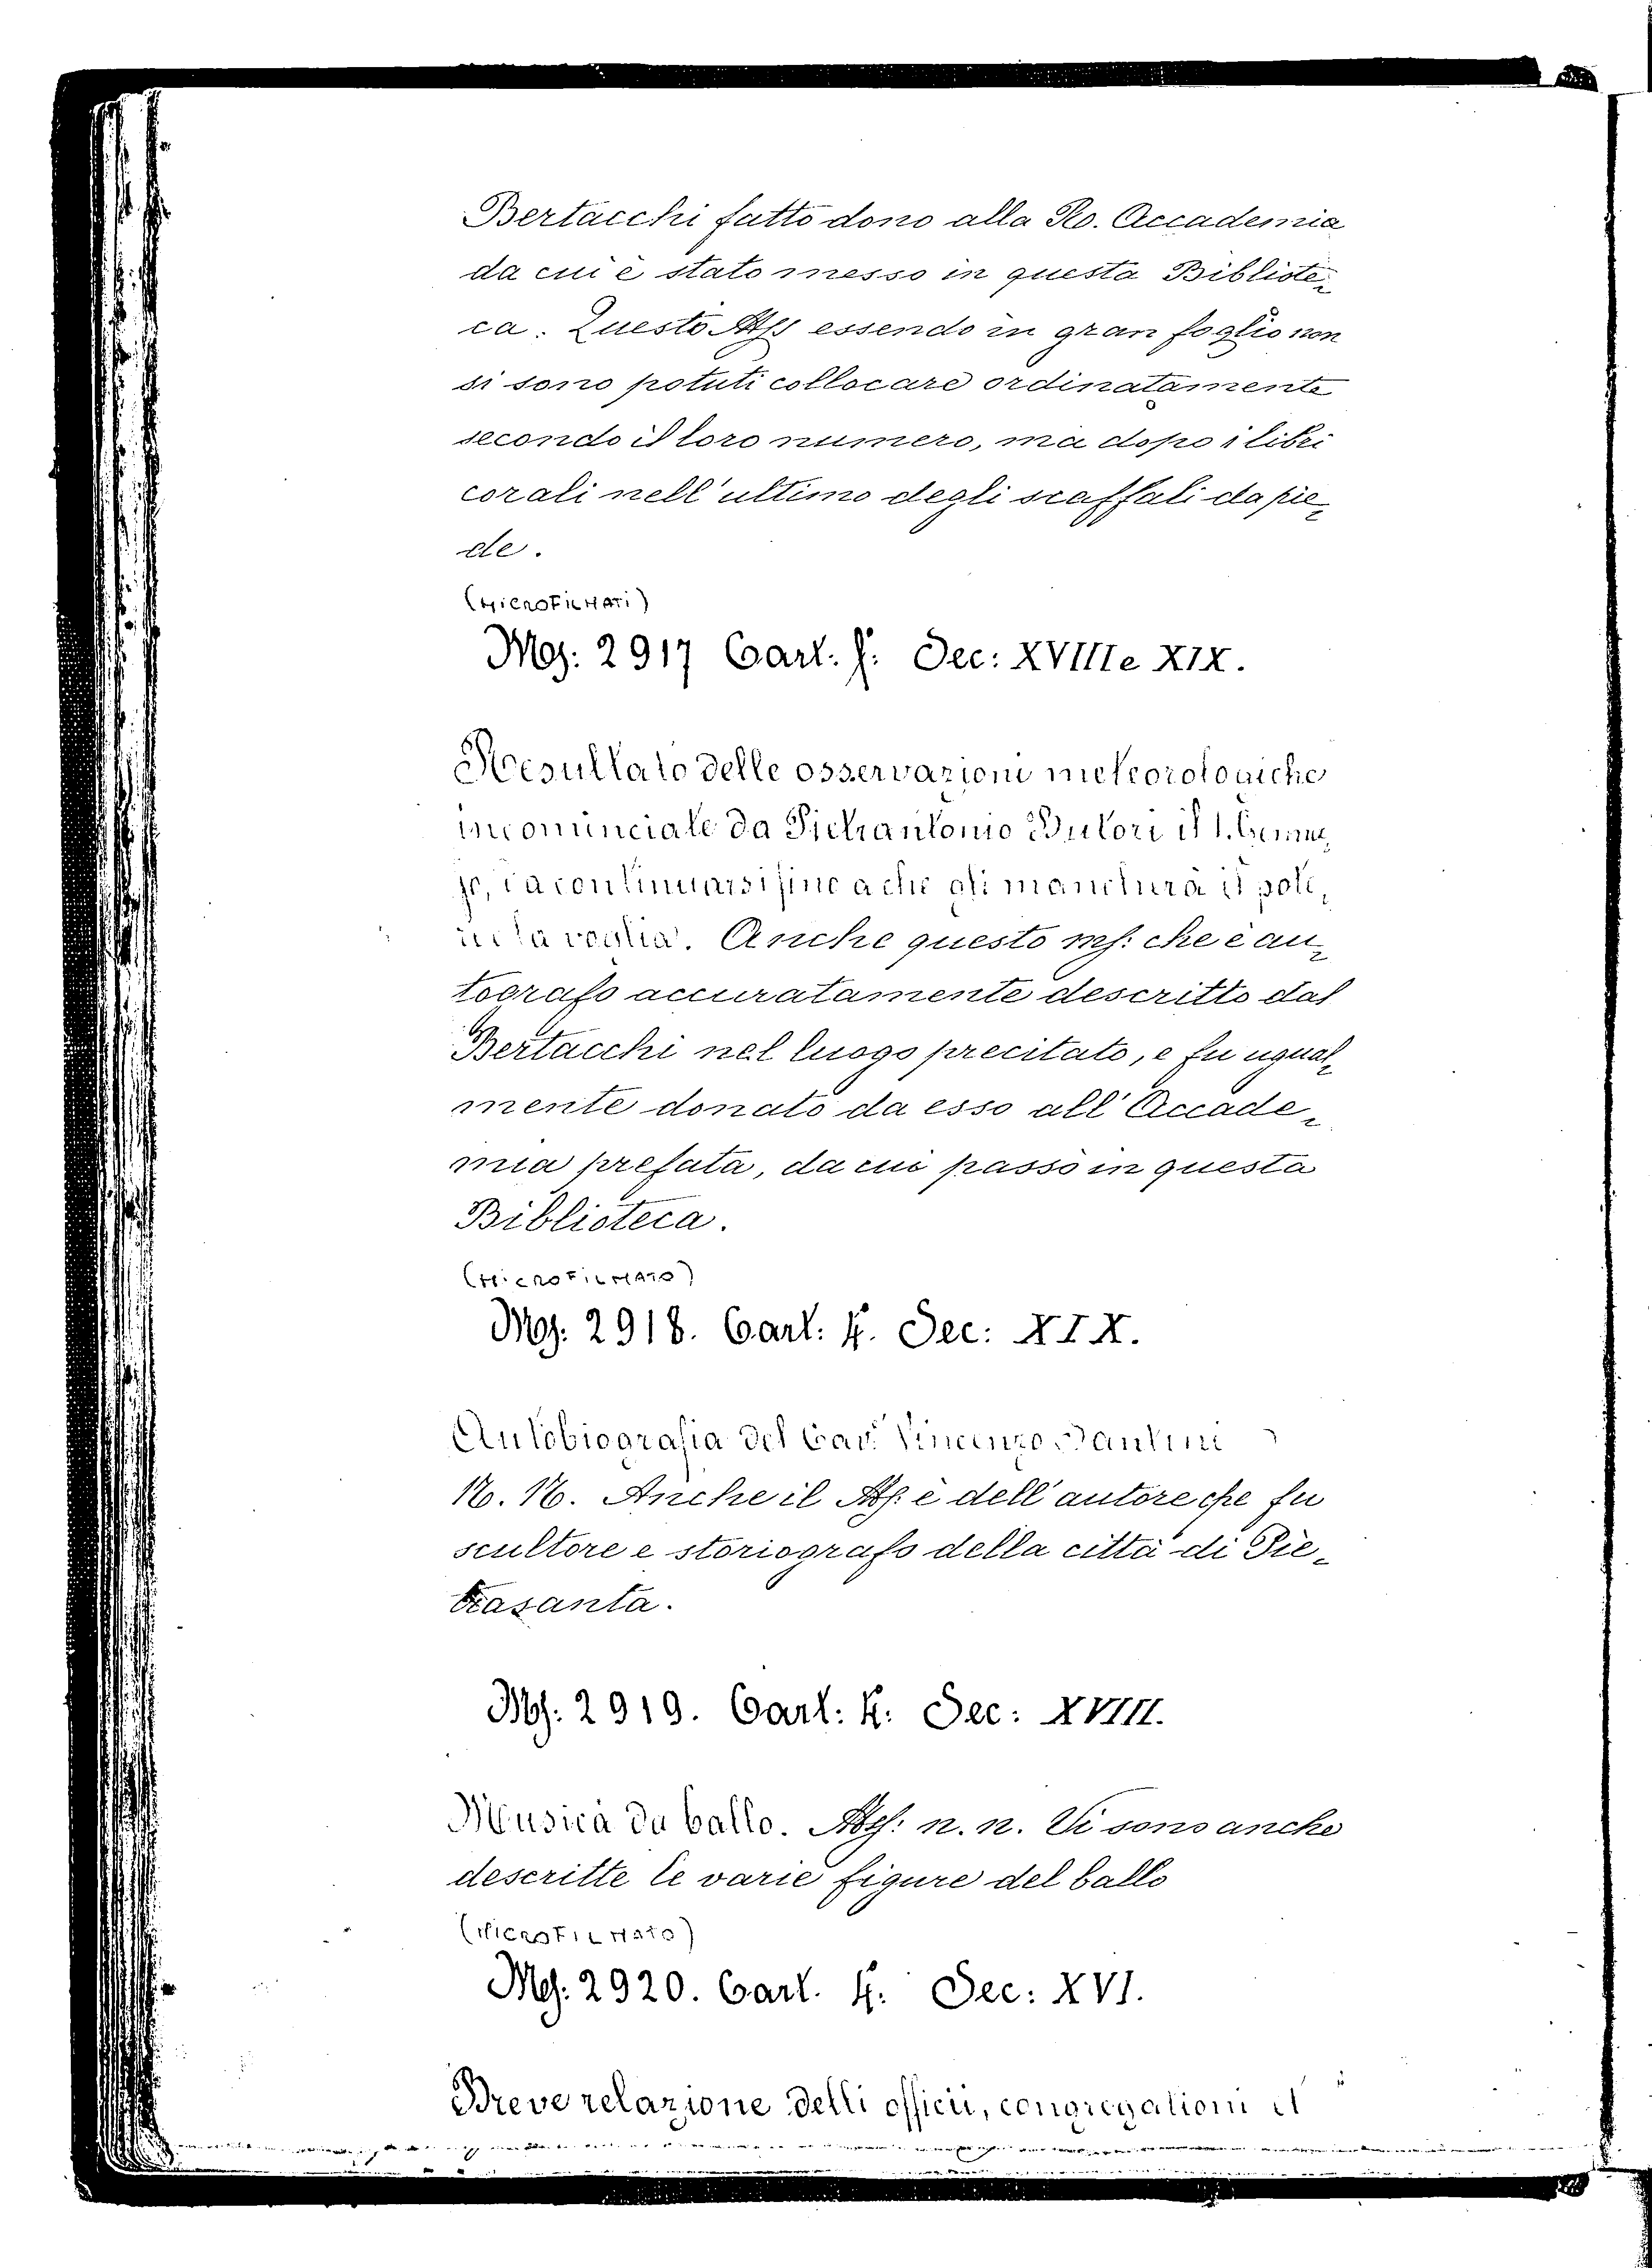 Bertacchi fatto dono alla R. Accademia
da cui è stato messo in questa Bibliote-
ca. Questo Mss essendo in gran foglio non
si sono potuti collocare ordinatamente
secondo il loro numero, ma dopo i libri
corali nell'ultimo degli scaffali da pie-
de.
(MICROFILMATI)
Ms: 2917 Cart: f: Sec: XVIII e XIX.
Resultato delle osservazioni meteorologiche
incominciate da Pietrantonio Butori il 1. Genna-
jo, da continuarsi fino a che gli mancherà il pote-
re e la voglia. Anche questo ms: che è au-
tografo accuratamente descritto dal
Bertacchi nel luogo precitato, e fu ugual-
mente donato da esso all'Accade-
mia prefata, da cui passò in questa
Biblioteca.
(MICROFILMATO)
Ms: 2918. Cart: 4. Sec: XIX.
Autobiografia del Cav. Vincenzo Santini
N. N. Anche il Ms: è dell'autore che fu
scultore e storiografo della città di Pie-
trasanta.
Ms: 2919. Cart: 4: Sec: XVIII.
Musica da ballo. Ms: n. n. Vi sono anche
descritte le varie figure del ballo
(MICROFILMATO)
Ms: 2920. Cart. 4: Sec: XVI.
Breve relazione delli officii, congregationi et